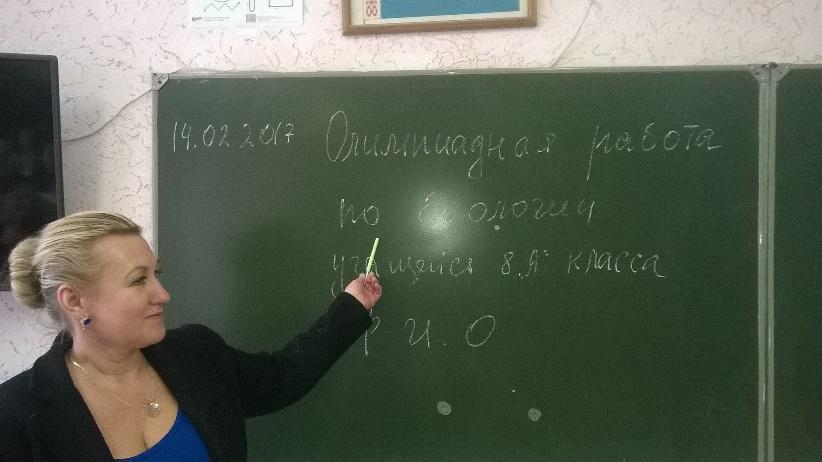 14.02.2017 Олимпиадная работа
по биологии
учащейся 8 „А" класса
Ф. И. О